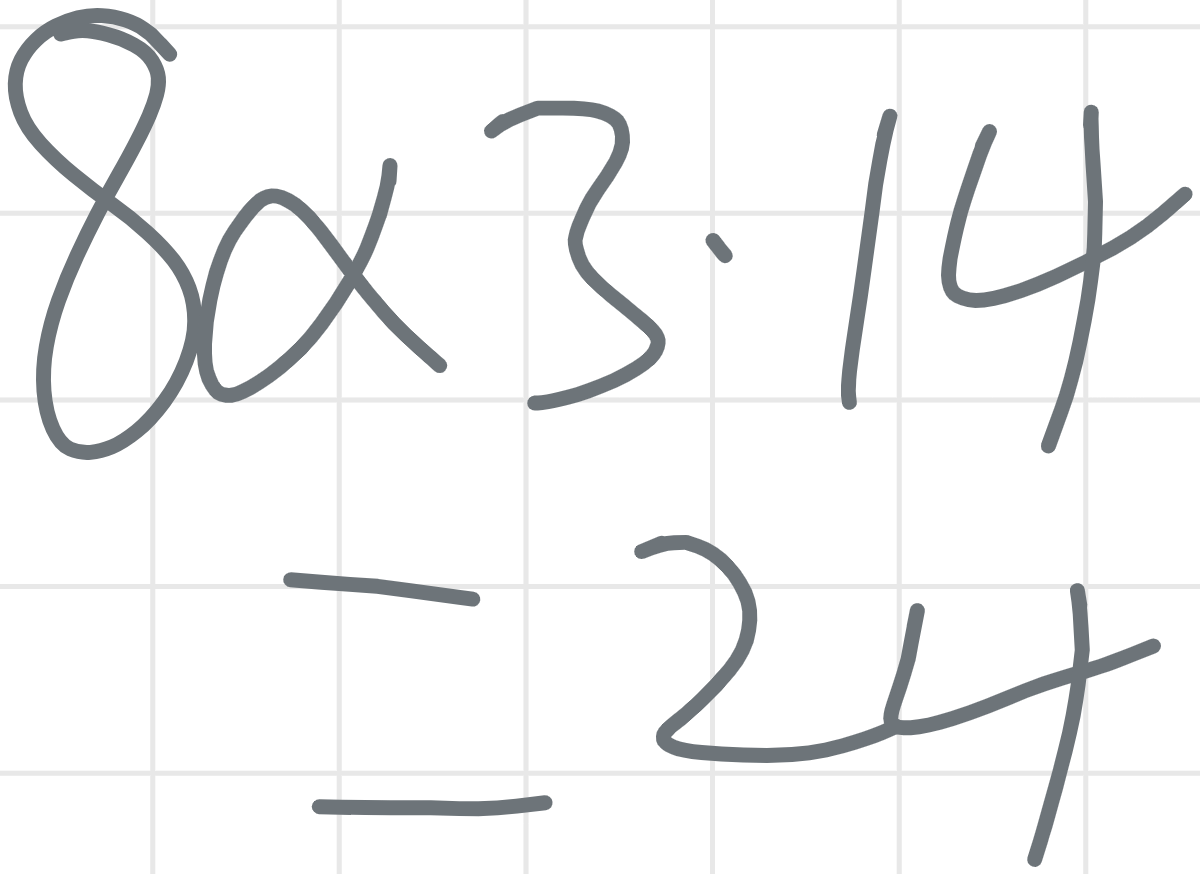 8α3.14
=24